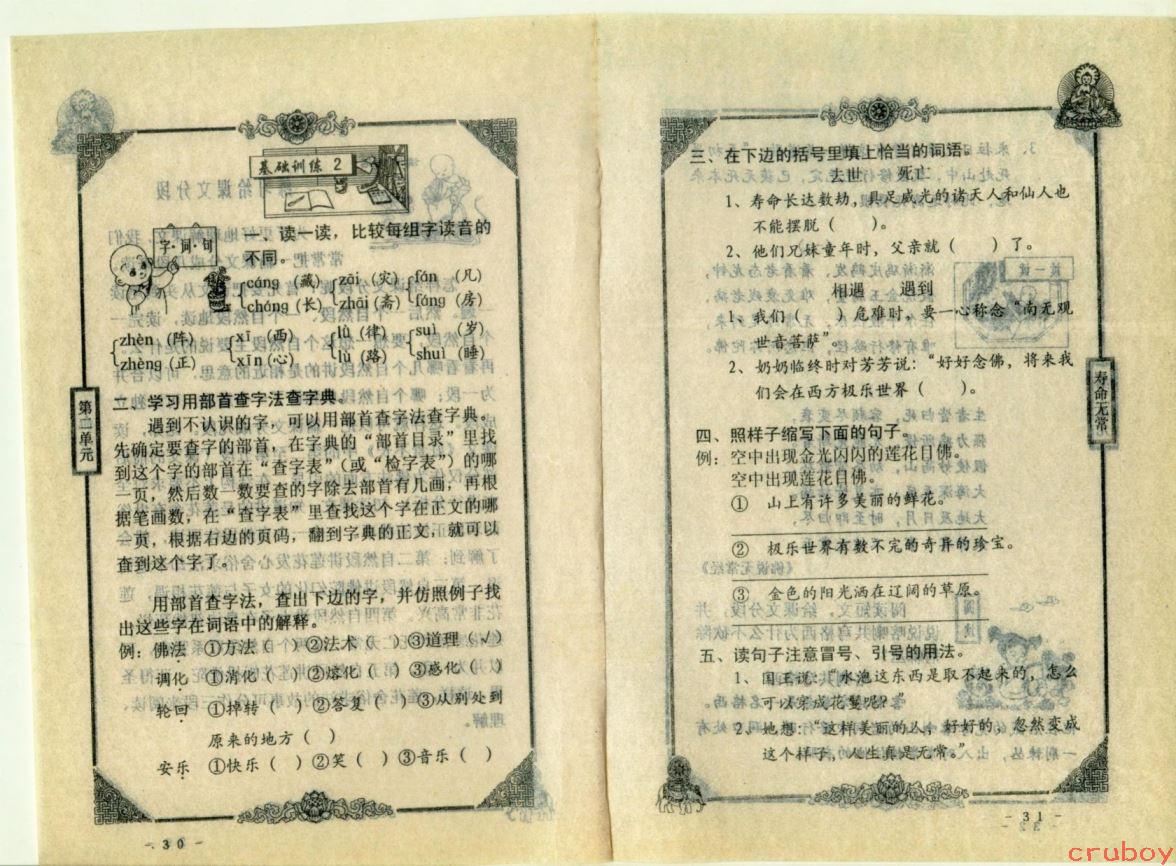 基础训练 2
字·词·句
一、读一读，比较每组字读音的
不同。
cáng (藏) zāi (灾) fán (凡)
cháng (长) zhāi (斋) fáng (房)
zhèn (阵) xī (西) lǜ (律) suì (岁)
zhèng (正) xīn (心) lù (路) shuì (睡)
二、学习用部首查字法查字典。
遇到不认识的字，可以用部首查字法查字典。
先确定要查字的部首，在字典的“部首目录”里找
到这个字的部首在“查字表”(或“检字表”)的哪
一页，然后数一数要查的字除去部首有几画，再根
据笔画数，在“查字表”里查找这个字在正文的哪
一页，根据右边的页码，翻到字典的正文，就可以
查到这个字了。
用部首查字法，查出下边的字，并仿照例子找
出这些字在词语中的解释。
例：佛法 ①方法（ ）②法术（ ）③道理（√）
调化 ①消化（ ）②熔化（ ）③感化（ ）
轮回 ①掉转（ ）②答复（ ）③从别处到
原来的地方（ ）
安乐 ①快乐（ ）②笑（ ）③音乐（ ）
第二单元
- 30 -
三、在下边的括号里填上恰当的词语。
去世 死亡
1、寿命长达数劫，具足威光的诸天人和仙人也
不能摆脱（ ）。
2、他们兄妹童年时，父亲就（ ）了。
相遇 遇到
1、我们（ ）危难时，要一心称念“南无观
世音菩萨”。
2、奶奶临终时对芳芳说：“好好念佛，将来我
们会在西方极乐世界（ ）。
四、照样子缩写下面的句子。
例：空中出现金光闪闪的莲花目佛。
空中出现莲花目佛。
① 山上有许多美丽的鲜花。
② 极乐世界有数不完的奇异的珍宝。
③ 金色的阳光洒在辽阔的草原。
五、读句子注意冒号、引号的用法。
1、国王说：“水泡这东西是取不起来的，怎么
可以穿成花鬘呢？”
2、她想：“这样美丽的人，好好的，忽然变成
这个样子，人生真是无常。”
寿命无常
- 31 -
cruboy